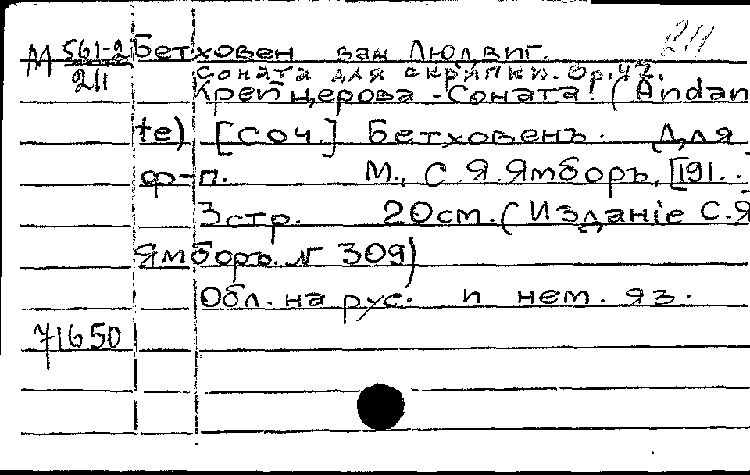 211
М 561-2 Бетховен ван Людвиг.
211 Соната для скрипки. Op. 47.
Крейцерова-Соната! (Andan
te) [соч.] Бетховенъ. Для
ф-п. М., С.Я.Ямборъ, [191..
3 стр. 20 см. (Изданіе С.Я
Ямборъ. N 309)
Обл. на рус. и нем. яз.
71650